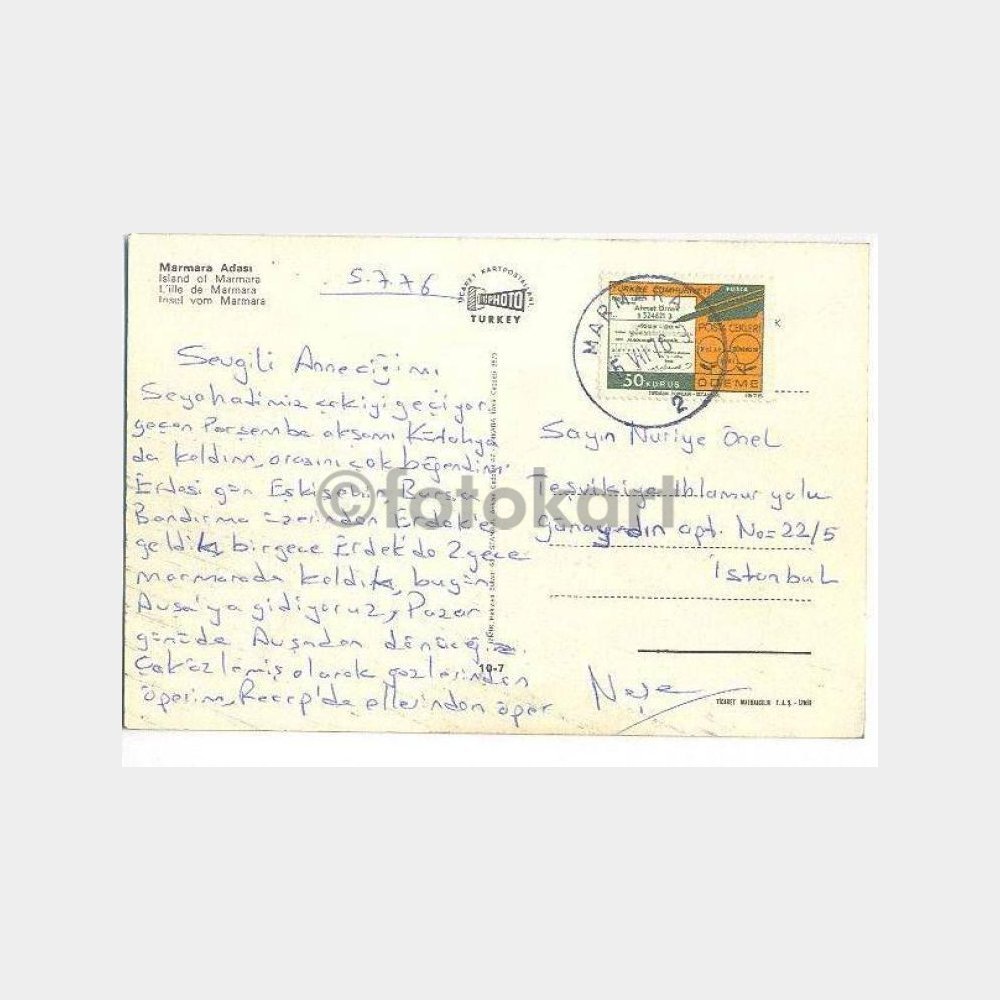 Marmara Adası
Island of Marmara
L'ille de Marmara
Insel vom Marmara
5.7.76
TICARET KARTPOSTALLARI
PHOTO
TURKEY
Sevgili Anneciğim,
Seyahatimiz çok iyi geçiyor
geçen Perşembe akşamı Kütahya
da kaldım, orasını çok beğendim.
Ertesi gün Eskişehir Bursa
Bandırma üzerinden Erdek'e
geldik, bir gece Erdek'de 2 gece
marmarada kaldık, bugün
Avşa'ya gidiyoruz, Pazar
günüde Avşadan dönüceğiz.
Çok özlemiş olarak gözlerinden
öperim, Recep'de ellerinden öper
10-7
TÜRKİYE CUMHURİYETİ
POSTA
Ahmet
S 324621 3
POSTA ÇEKLERİ
50 KURUŞ
ÖDEME
1975
MARMARA
5 VII 76
2
Sayın Nuriye Önel
Teşvikiye Ihlamur yolu
Günaydın apt. No=22/5
İstanbul
Neşe
TİCARET MATBAACILIK T.A.Ş. - İZMİR
©fotokart